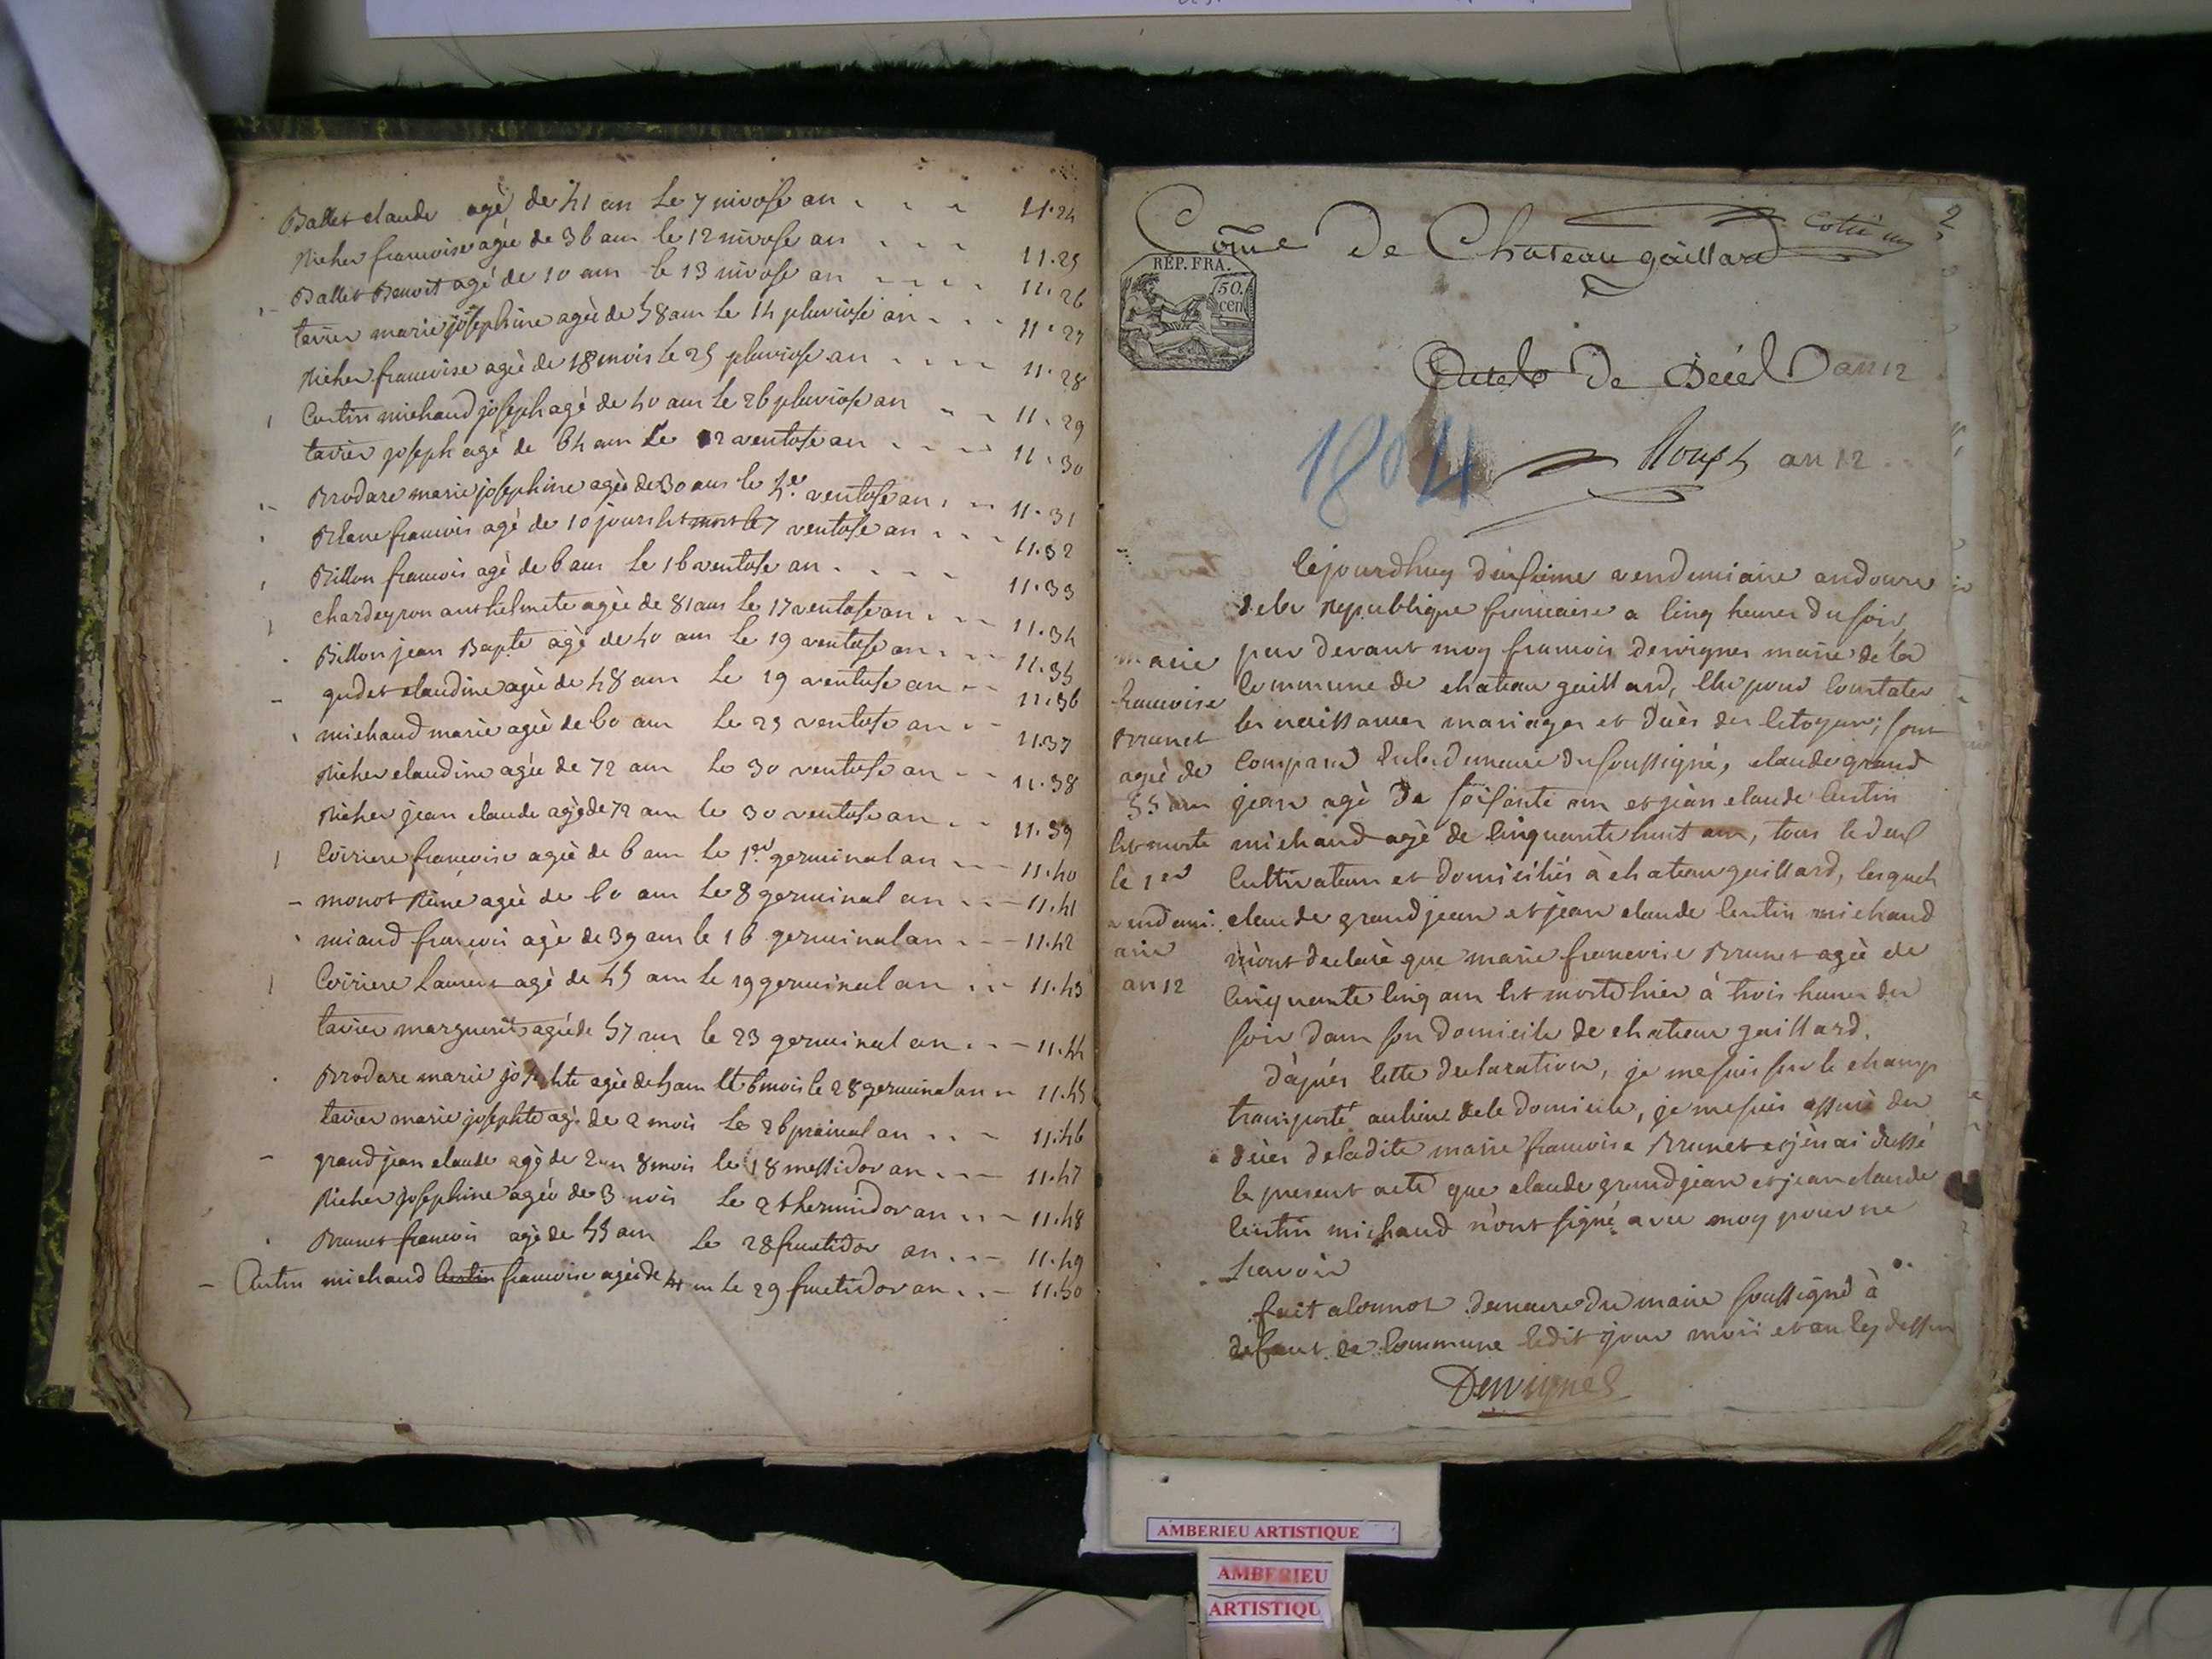 Ballet claude agè de 41 an Le 7 nivose an 11.24
Richer francoise agèe de 36 ans le 12 nivose an 11.25
Ballet Benoit agé de 10 ans le 13 nivose an 11.26
tavier marie josephine agèe de 58 ans Le 14 pluviose an 11.27
Richer francoise agèe de 18 mois le 25 pluviose an 11.28
Custin michaud joseph agé de 40 ans Le 26 pluviose an 11.29
tavier joseph agé de 64 ans Le 2 ventose an 11.30
Brodare marie josephine agèe de 30 ans le 4e ventose an 11.31
francois agé de 10 jours est mort le 7 ventose an 11.32
Billon francois agé de 6 ans Le 16 ventose an 11.33
chardeyron anthelmete agèe de 81 ans Le 17 ventose an 11.34
Billon jean Bapte agè de 40 ans Le 19 ventose an 11.35
gudet claudine agèe de 48 ans Le 19 ventose an 11.36
michaud marie agèe de 60 ans Le 25 ventose an 11.37
Richer claudine agèe de 72 ans Le 30 ventose an 11.38
Richer jean claude agè de 72 ans le 30 ventose an 11.39
Coiriere francoise agèe de 6 ans Le 1er germinal an 11.40
monot Reine agèe de 60 ans Le 8 germinal an 11.41
miaud françois agè de 39 ans le 16 germinal an 11.42
Coiriere Laurent agé de 45 ans Le 19 germinal an 11.43
tavier marguerite agèe de 57 ans le 23 germinal an 11.44
Brodare marie josephte agèe de 4 ans et 6 mois le 28 germinal an 11.45
tavier marie josephte agè de 2 mois Le 26 prairial an 11.46
grand jean claude agè de 2 an 8 mois le 18 messidor an 11.47
Richer josephine agée de 3 mois Le 2 thermidor an 11.48
Brunet francois agè de 45 ans Le 28 fructidor an 11.49
Custin michaud Custin francoise agèe de 41 an le 29 fructidor an 11.50
2
Coṁe De Chateau gaillard Cotté un
REP. FRA.
50. cen
Acte de Décés an 12
1804
an 12
Cejourdhuy deusieme vendemiaire an douze
de la Republique francaise a Cinq heures du soir
par devant moy francois Dervignes maire de la
Commune de chateau gaillard, Elu pour Constater
les naissances mariages et décès des Citoyens, sont
Comparus dans la demeure du soussigné, claude grand
jean agé De soisante ans et jean claude Custin
michaud agé de Cinquante huit ans, tous le deux
Cultivateurs et domiciliés à chateau gaillard, lesquels
claude grand jean et jean claude Custin michaud
m'ont declarè que marie francoise Brunet agèe de
Cinquante Cinq ans est morte hier à trois heures du
soir dans son domicile de chateau gaillard.
D'aprés Cette declaration, je me suis sur le champ
transporté au lieu de le domicile, je me suis assurè du
décès de ladite marie francoise Brunet et j'en ai dressé
le present acte que claude grand jean et jean claude
Custin michaud n'ont signé avec moy pour ne
scavoir
fait a Connot demeure du maire soussigné à
defaut de Commune ledit jour mois et an cy dessus
Dervignes
marie
francoise
Brunet
agèe de
55 ans
est morte
le 1er
vendemi
aire
an 12
AMBERIEU ARTISTIQUE
AMBERIEU
ARTISTIQU